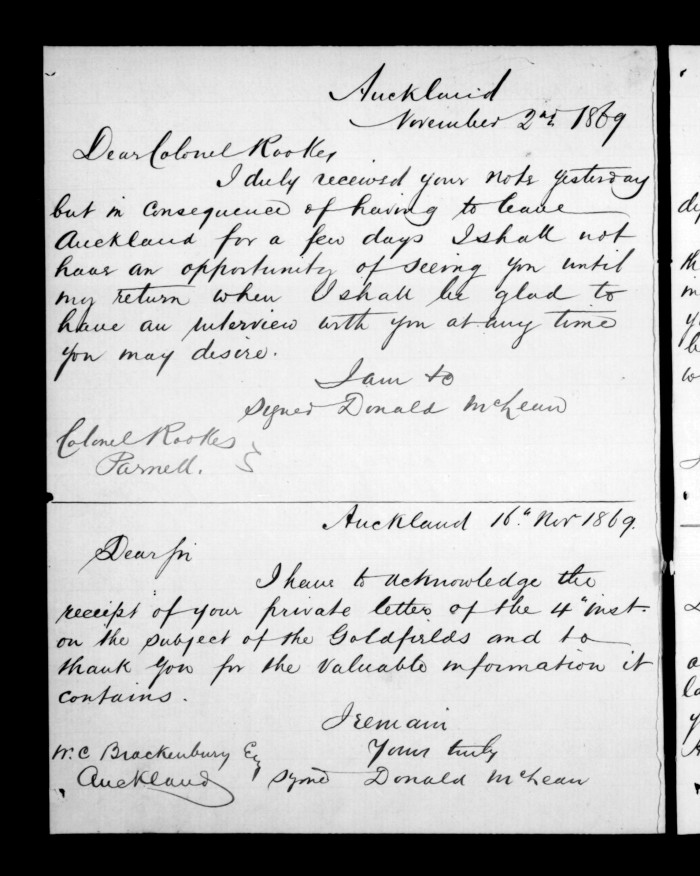 Auckland
November 2nd. 1869
Dear Colonel Rookes,
I duly received your note yesterday
but in consequence of having to leave
Auckland for a few days I shall not
have an opportunity of seeing you until
my return when I shall be glad to
have an interview with you at any time
you may desire.
I am &c
signed Donald McLean
Colonel Rookes
Parnell.
Auckland 16th Nov 1869.
Dear Sir
I have to acknowledge the
receipt of your private letter of the 4th inst.
on the subject of the Goldfields and to
thank you for the valuable information it
contains.
I remain
Yours truly
W. C Brackenbury Esq
Auckland
signed Donald McLean